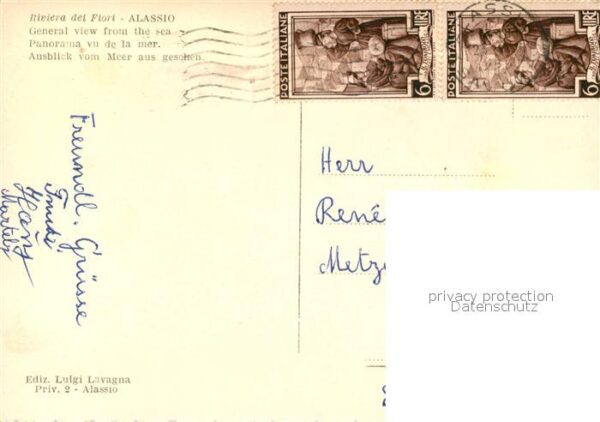 Riviera dei Fiori - ALASSIO
General view from the sea
Panorama vu de la mer.
Ausblick vom Meer aus gesehen.
POSTE ITALIANE
LIRE
6
POSTE ITALIANE
LIRE
6
ASS
Freundl. Grüsse
Trudi
Herr
René
Metzg
privacy protection
Datenschutz
Ediz. Luigi Lavagna
Priv. 2 - Alassio